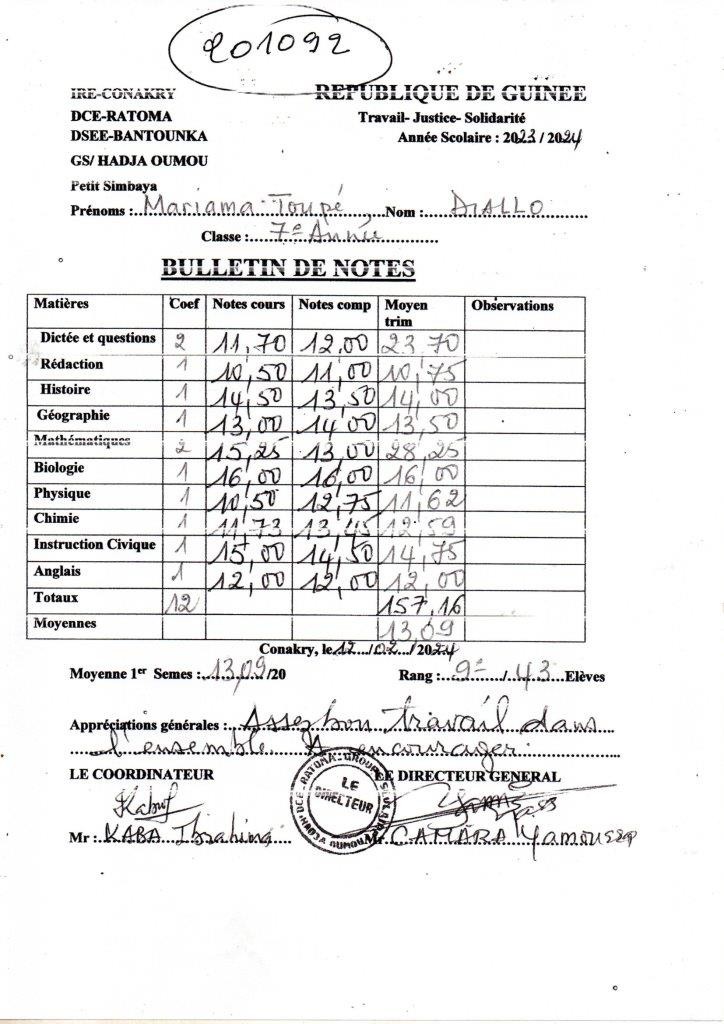 201092
IRE-CONAKRY REPUBLIQUE DE GUINEE
DCE-RATOMA Travail- Justice- Solidarité
DSEE-BANTOUNKA Année Scolaire : 2023 / 2024
GS/ HADJA OUMOU
Petit Simbaya
Prénoms : Mariama Toupé Nom : DIALLO
Classe : 7e Année
BULLETIN DE NOTES
Matières Coef Notes cours Notes comp Moyen trim Observations
Dictée et questions 2 11,70 12,00 23,70
Rédaction 1 10,50 11,00 10,75
Histoire 1 14,50 13,50 14,00
Géographie 1 13,00 14,00 13,50
Mathématiques 2 15,25 13,00 28,25
Biologie 1 16,00 16,00 16,00
Physique 1 10,50 12,75 11,62
Chimie 1 11,73 13,45 12,59
Instruction Civique 1 15,00 14,50 14,75
Anglais 1 12,00 12,00 12,00
Totaux 12 157,16
Moyennes 13,09
Conakry, le 12 / 02 / 2024
Moyenne 1er Semes : 13,09/20 Rang : 9e / 43 Elèves
Appréciations générales : Assez bon travail dans
l'ensemble. A encourager.
LE COORDINATEUR LE DIRECTEUR GENERAL
DCE-RATOMA-GROUPE SCOLAIRE HADJA OUMOU
LE DIRECTEUR
Mr : KABA Ibrahima Mr CAMARA Yamoussa